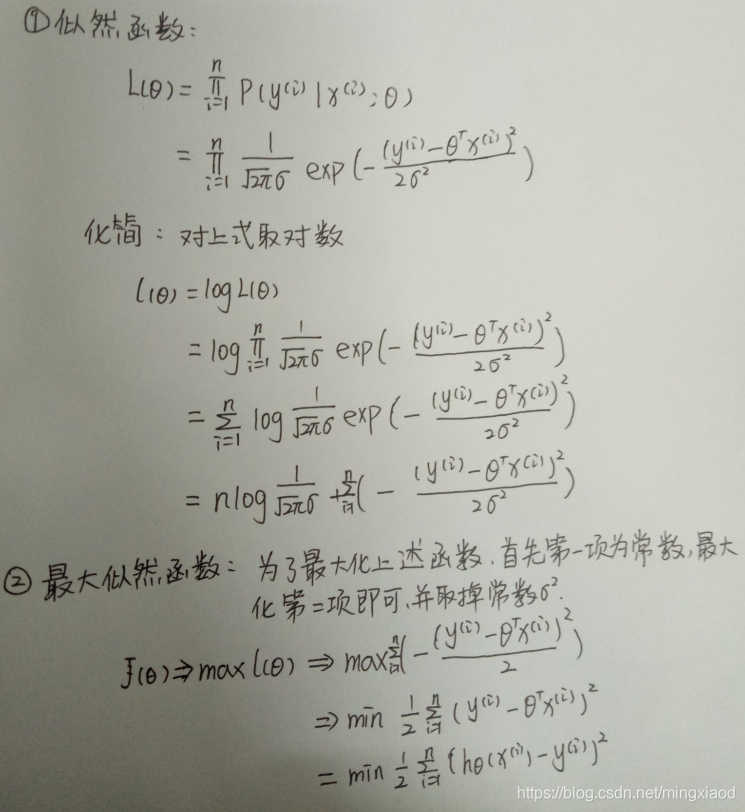 ①似然函数:
L(θ) = ∏_{i=1}^{n} P(y^{(i)} | x^{(i)}; θ)
= ∏_{i=1}^{n} \frac{1}{\sqrt{2π}σ} exp(-\frac{(y^{(i)} - θ^T x^{(i)})^2}{2σ^2})
化简: 对上式取对数
l(θ) = log L(θ)
= log ∏_{i=1}^{n} \frac{1}{\sqrt{2π}σ} exp(-\frac{(y^{(i)} - θ^T x^{(i)})^2}{2σ^2})
= ∑_{i=1}^{n} log \frac{1}{\sqrt{2π}σ} exp(-\frac{(y^{(i)} - θ^T x^{(i)})^2}{2σ^2})
= n log \frac{1}{\sqrt{2π}σ} + ∑_{i=1}^{n} (-\frac{(y^{(i)} - θ^T x^{(i)})^2}{2σ^2})
②最大似然函数: 为了最大化上述函数,首先第一项为常数,最大
化第二项即可,并取掉常数σ^2.
J(θ) ⇒ max l(θ) ⇒ max ∑_{i=1}^{n} (-\frac{(y^{(i)} - θ^T x^{(i)})^2}{2})
⇒ min \frac{1}{2} ∑_{i=1}^{n} (y^{(i)} - θ^T x^{(i)})^2
= min \frac{1}{2} ∑_{i=1}^{n} (hθ(x^{(i)}) - y^{(i)})^2
https://blog.csdn.net/mingxiaod